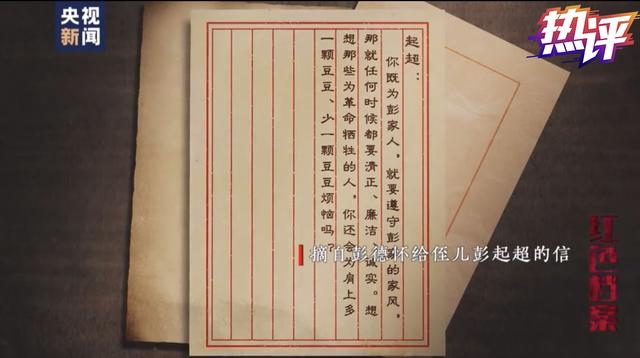 央视
新闻
热评
起超：
你既为彭家人，就要遵守彭家的家风，
那就任何时候都要清正、廉洁、诚实。想
想那些为革命牺牲的人，你还会为肩上多
一颗豆豆、少一颗豆豆烦恼吗？
摘自彭德怀给侄儿彭起超的信
红色档案